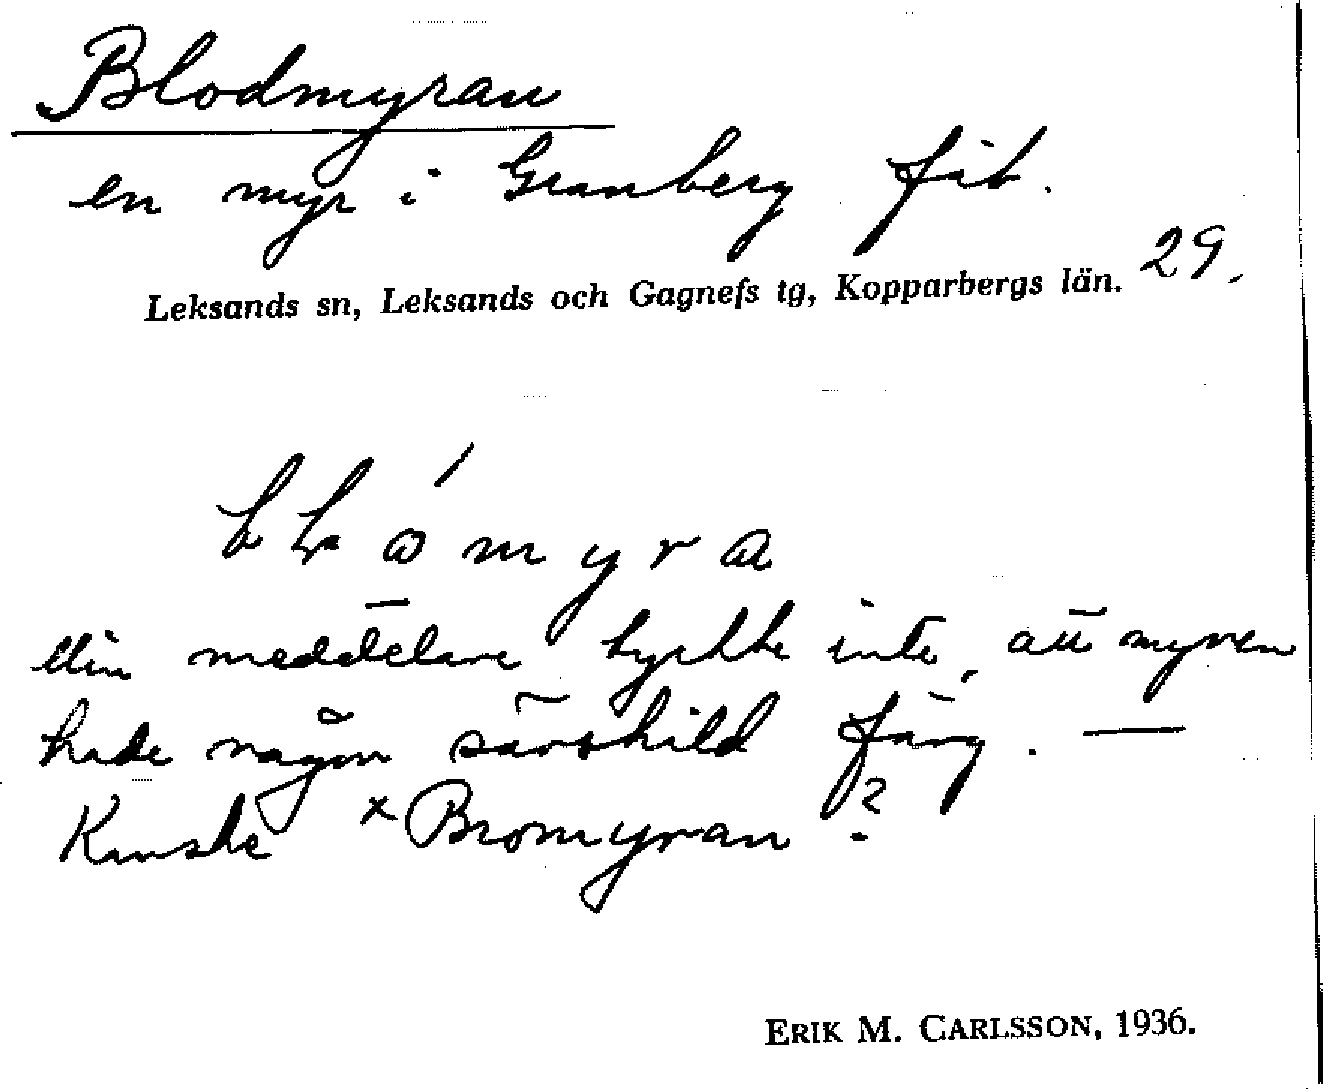 Blodmyran
en myr i Granberg fäb.
29.
Leksands sn, Leksands och Gagnefs tg, Kopparbergs län.
myra
Min meddelare tyckte inte, att myren
hade någon särskild färg. —
Kanske ˣBromyran ?
ERIK M. CARLSSON, 1936.